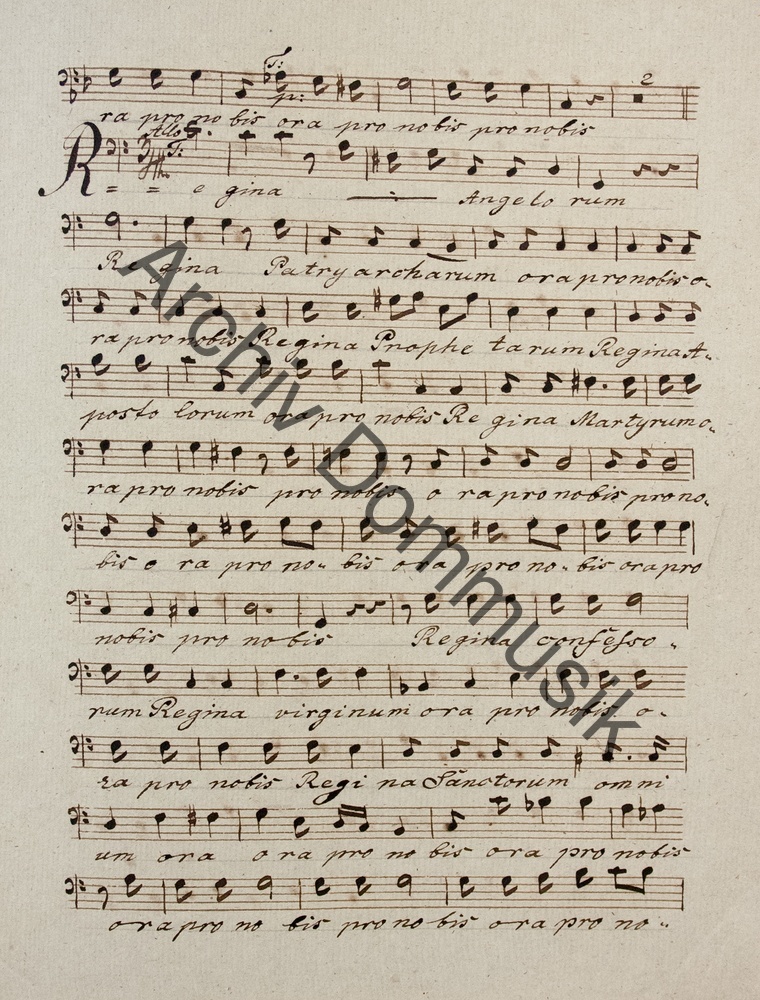 T:
p:
2
ra pro no bis ora pro nobis pro nobis
Allo
T:
R = = e gina Angelo rum
Re gina Patry archarum ora pro nobis o-
ra pro nobis Regina Prophe tarum Regina A-
posto lorum ora pro nobis Re gina Martyrum o-
ra pro nobis pro nobis o ra pro nobis pro no-
bis o ra pro no- bis ora pro no- bis ora pro
nobis pro nobis Regina confesso-
rum Regina virginum ora pro nobis o-
ra pro nobis Regi na Sanctorum omni
um ora o ra pro no bis ora pro nobis
ora pro no bis pro no bis ora pro no-
Archiv Dommusik